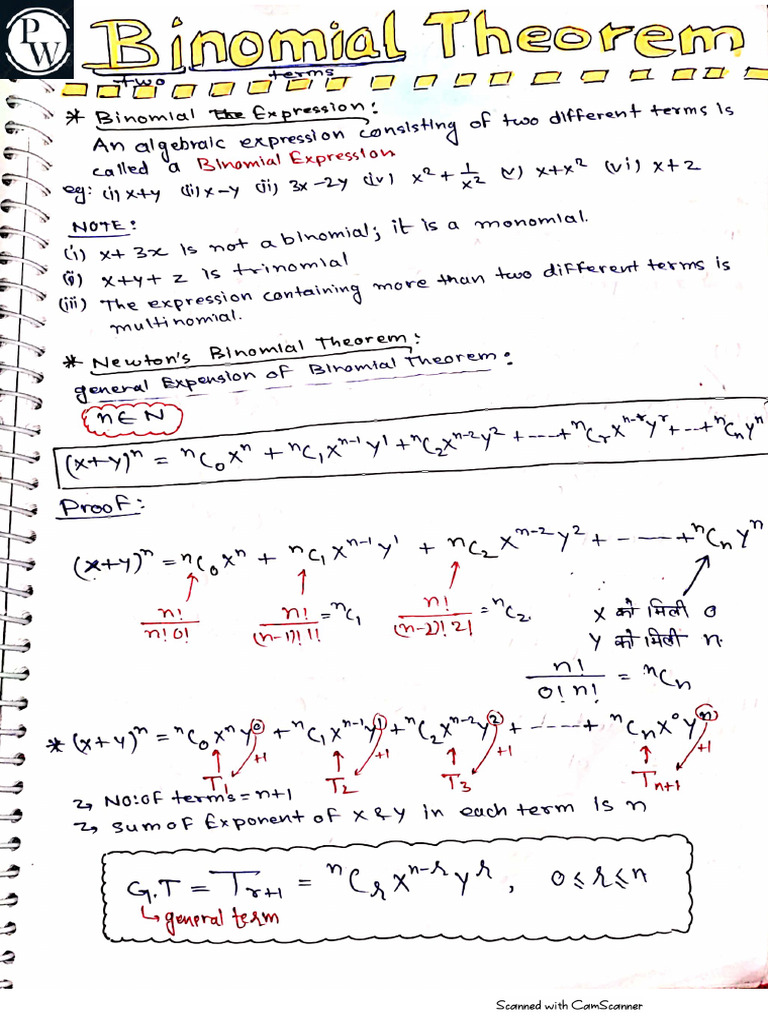 PW
Binomial Theorem
two terms
* Binomial the Expression:
An algebraic expression consisting of two different terms is
called a Binomial Expression
eg: (i) x+y (ii) x-y (ii) 3x-2y (iv) x² + 1/x² (v) x+x² (vi) x+z
NOTE:
(i) x+ 3x is not a binomial; it is a monomial.
(ii) x+y+ z is trinomial
(iii) The expression containing more than two different terms is
multinomial.
* Newton's Binomial Theorem:
general Expension of Binomial Theorem:
n∈N
(x+y)ⁿ = ⁿC₀xⁿ + ⁿC₁xⁿ⁻¹y¹ + ⁿC₂xⁿ⁻²y² + ----- + ⁿCᵣxⁿ⁻ʳyʳ + --- + ⁿCₙyⁿ
Proof:
(x+y)ⁿ = ⁿC₀xⁿ + ⁿC₁xⁿ⁻¹y¹ + ⁿC₂xⁿ⁻²y² + - ---- + ⁿCₙyⁿ
n!/n!0! n!/(n-1)!1! = ⁿC₁ n!/(n-2)!2! = ⁿC₂
x को मिली 0
y को मिली n.
n!/0!n! = ⁿCₙ
* (x+y)ⁿ = ⁿC₀xⁿy⁰ + ⁿC₁xⁿ⁻¹y¹ + ⁿC₂xⁿ⁻²y² + ----- + ⁿCₙx⁰yⁿ
+1 +1 +1 +1
T₁ T₂ T₃ Tₙ₊₁
↳ No: of terms = n+1
↳ sum of Exponent of x & y in each term is n
G.T = Tᵣ₊₁ = ⁿCᵣxⁿ⁻ʳyʳ, 0≤r≤n
↳ general term
Scanned with CamScanner